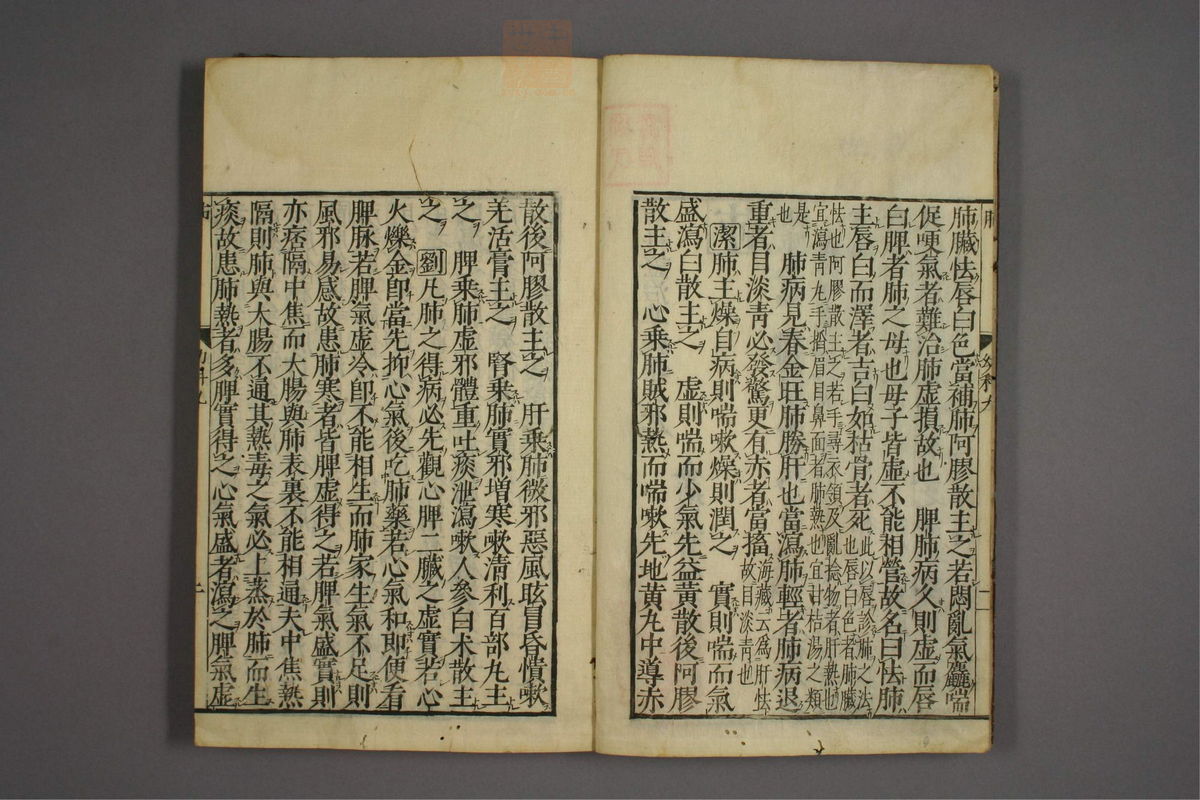 肺臟怯唇白色當補肺阿膠散主之若悶亂氣麤喘
促哽氣者難治肺虛損故也　脾肺病久則虛而唇
白脾者肺之母也母子皆虛不能相營故名曰怯肺
主唇白而澤者吉白如枯骨者死此以唇診肺之法也唇白色者肺臟
怯也阿膠散主之若手尋衣領及亂捻物者肝熱也
宜瀉青丸手搯眉目鼻面者肺熱也宜甘桔湯之類
是也　肺病見春金旺肺勝肝也當瀉肺輕者肺病退
重者目淡青必發驚更有赤者當搐海藏云爲肝怯故目淡青也
潔肺主燥自病則喘嗽燥則潤之　實則喘而氣
盛瀉白散主之　虛則喘而少氣先益黃散後阿膠
散主之　心乘肺賊邪熱而喘嗽先地黃丸中導赤
散後阿膠散主之　肝乘肺微邪惡風眩冒昏憒嗽
羌活膏主之　腎乘肺實邪增寒嗽清利百部丸主
之　脾乘肺虛邪體重吐痰泄瀉嗽人參白术散主
之　劉凡肺之得病必先觀心脾二臟之虛實若心
火爍金卽當先抑心氣後吃肺藥若心氣和卽便看
脾脉若脾氣虛冷卽不能相生而肺家生氣不足則
風邪易感故患肺寒者皆脾虛得之若脾氣盛實則
亦痞隔中焦而大腸與肺表裏不能相通夫中焦熱
隔則肺與大腸不通其熱毒之氣必上蒸於肺而生
痰故患肺熱者多脾實得之心氣盛者瀉之脾氣虛